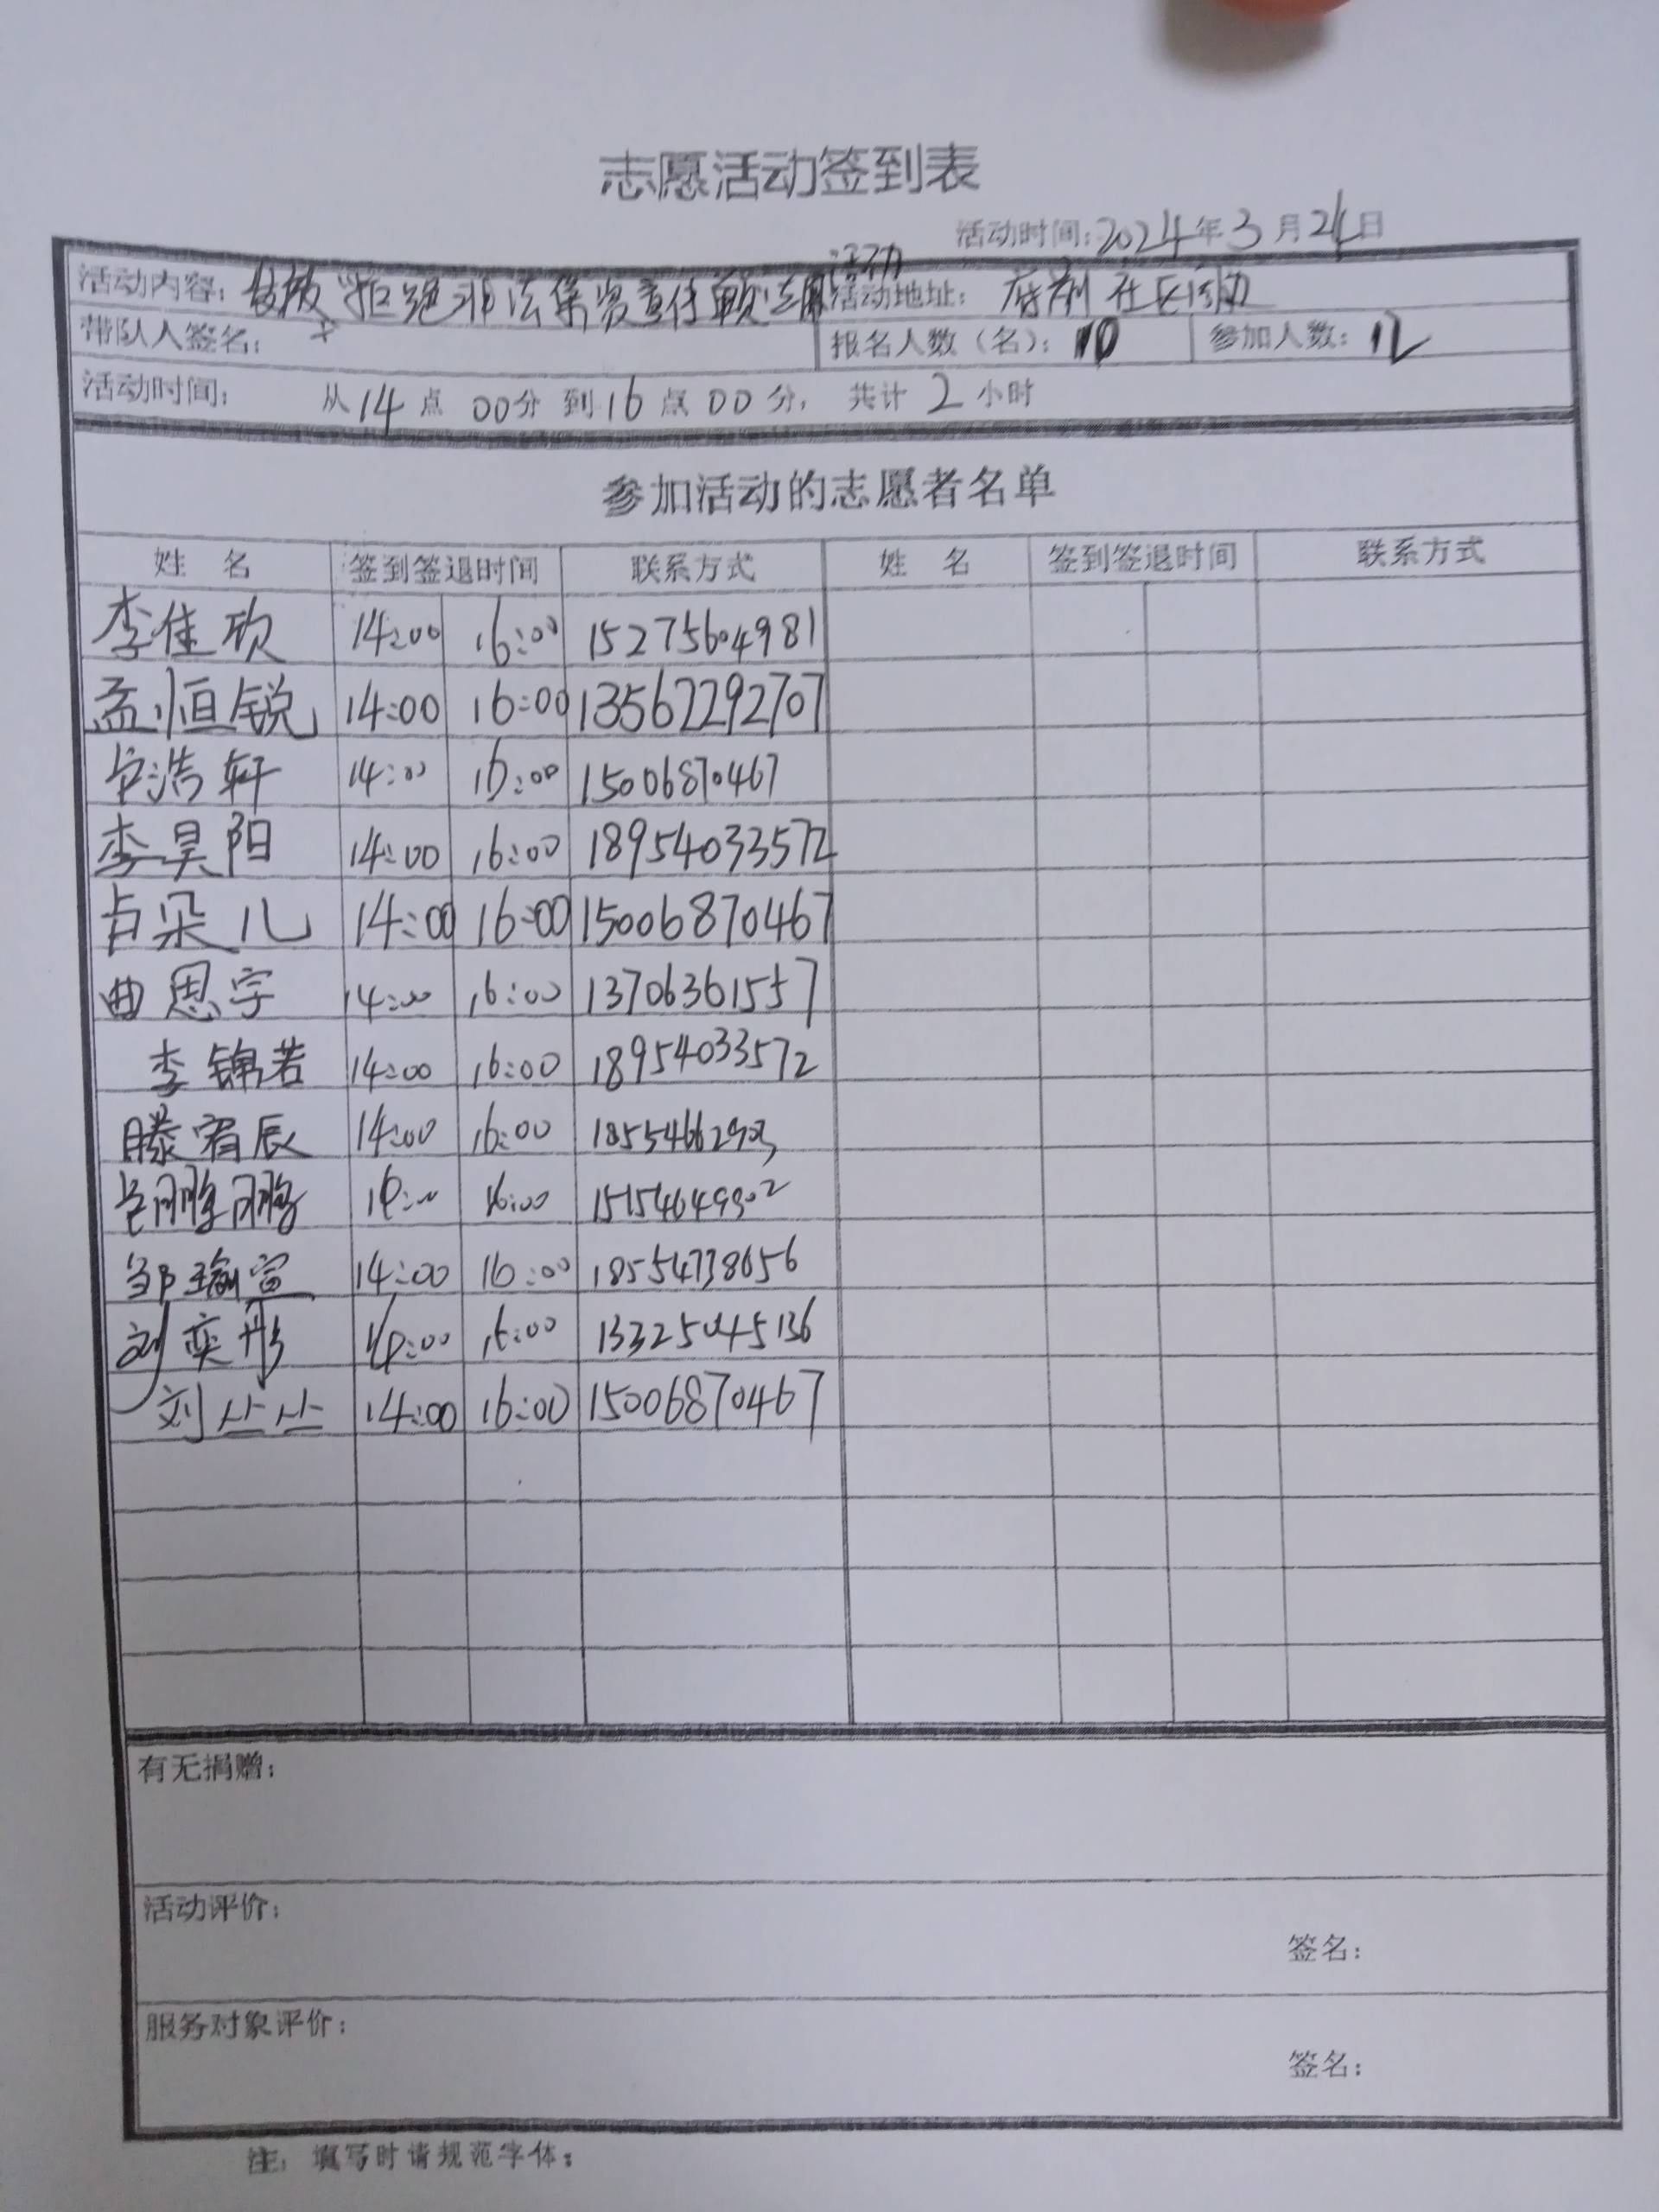 志愿活动签到表
活动时间:2024年3月24日
活动内容: "拒绝非法集资责任 活动 活动地址: 府前社区活动
带队人签名: 报名人数(名): 10 参加人数: 12
活动时间: 从14点00分到16点00分, 共计2小时
参加活动的志愿者名单
姓 名 签到签退时间 联系方式 姓 名 签到签退时间 联系方式
李佳欣 14:00 16:00 15275604981
孟恒锐 14:00 16:00 13562292707
浩轩 14:00 16:00 15006870467
李昊阳 14:00 16:00 18954033572
卢朵儿 14:00 16:00 15006870467
曲恩宇 14:00 16:00 13706361557
李锦若 14:00 16:00 18954033572
滕宥辰 14:00 16:00
14:00 16:00
邹瑜宣 14:00 16:00 18554738656
刘奕彤 14:00 16:00
刘 14:00 16:00 15006870467
有无捐赠:
活动评价:
签名:
服务对象评价:
签名:
注: 填写时请规范字体;